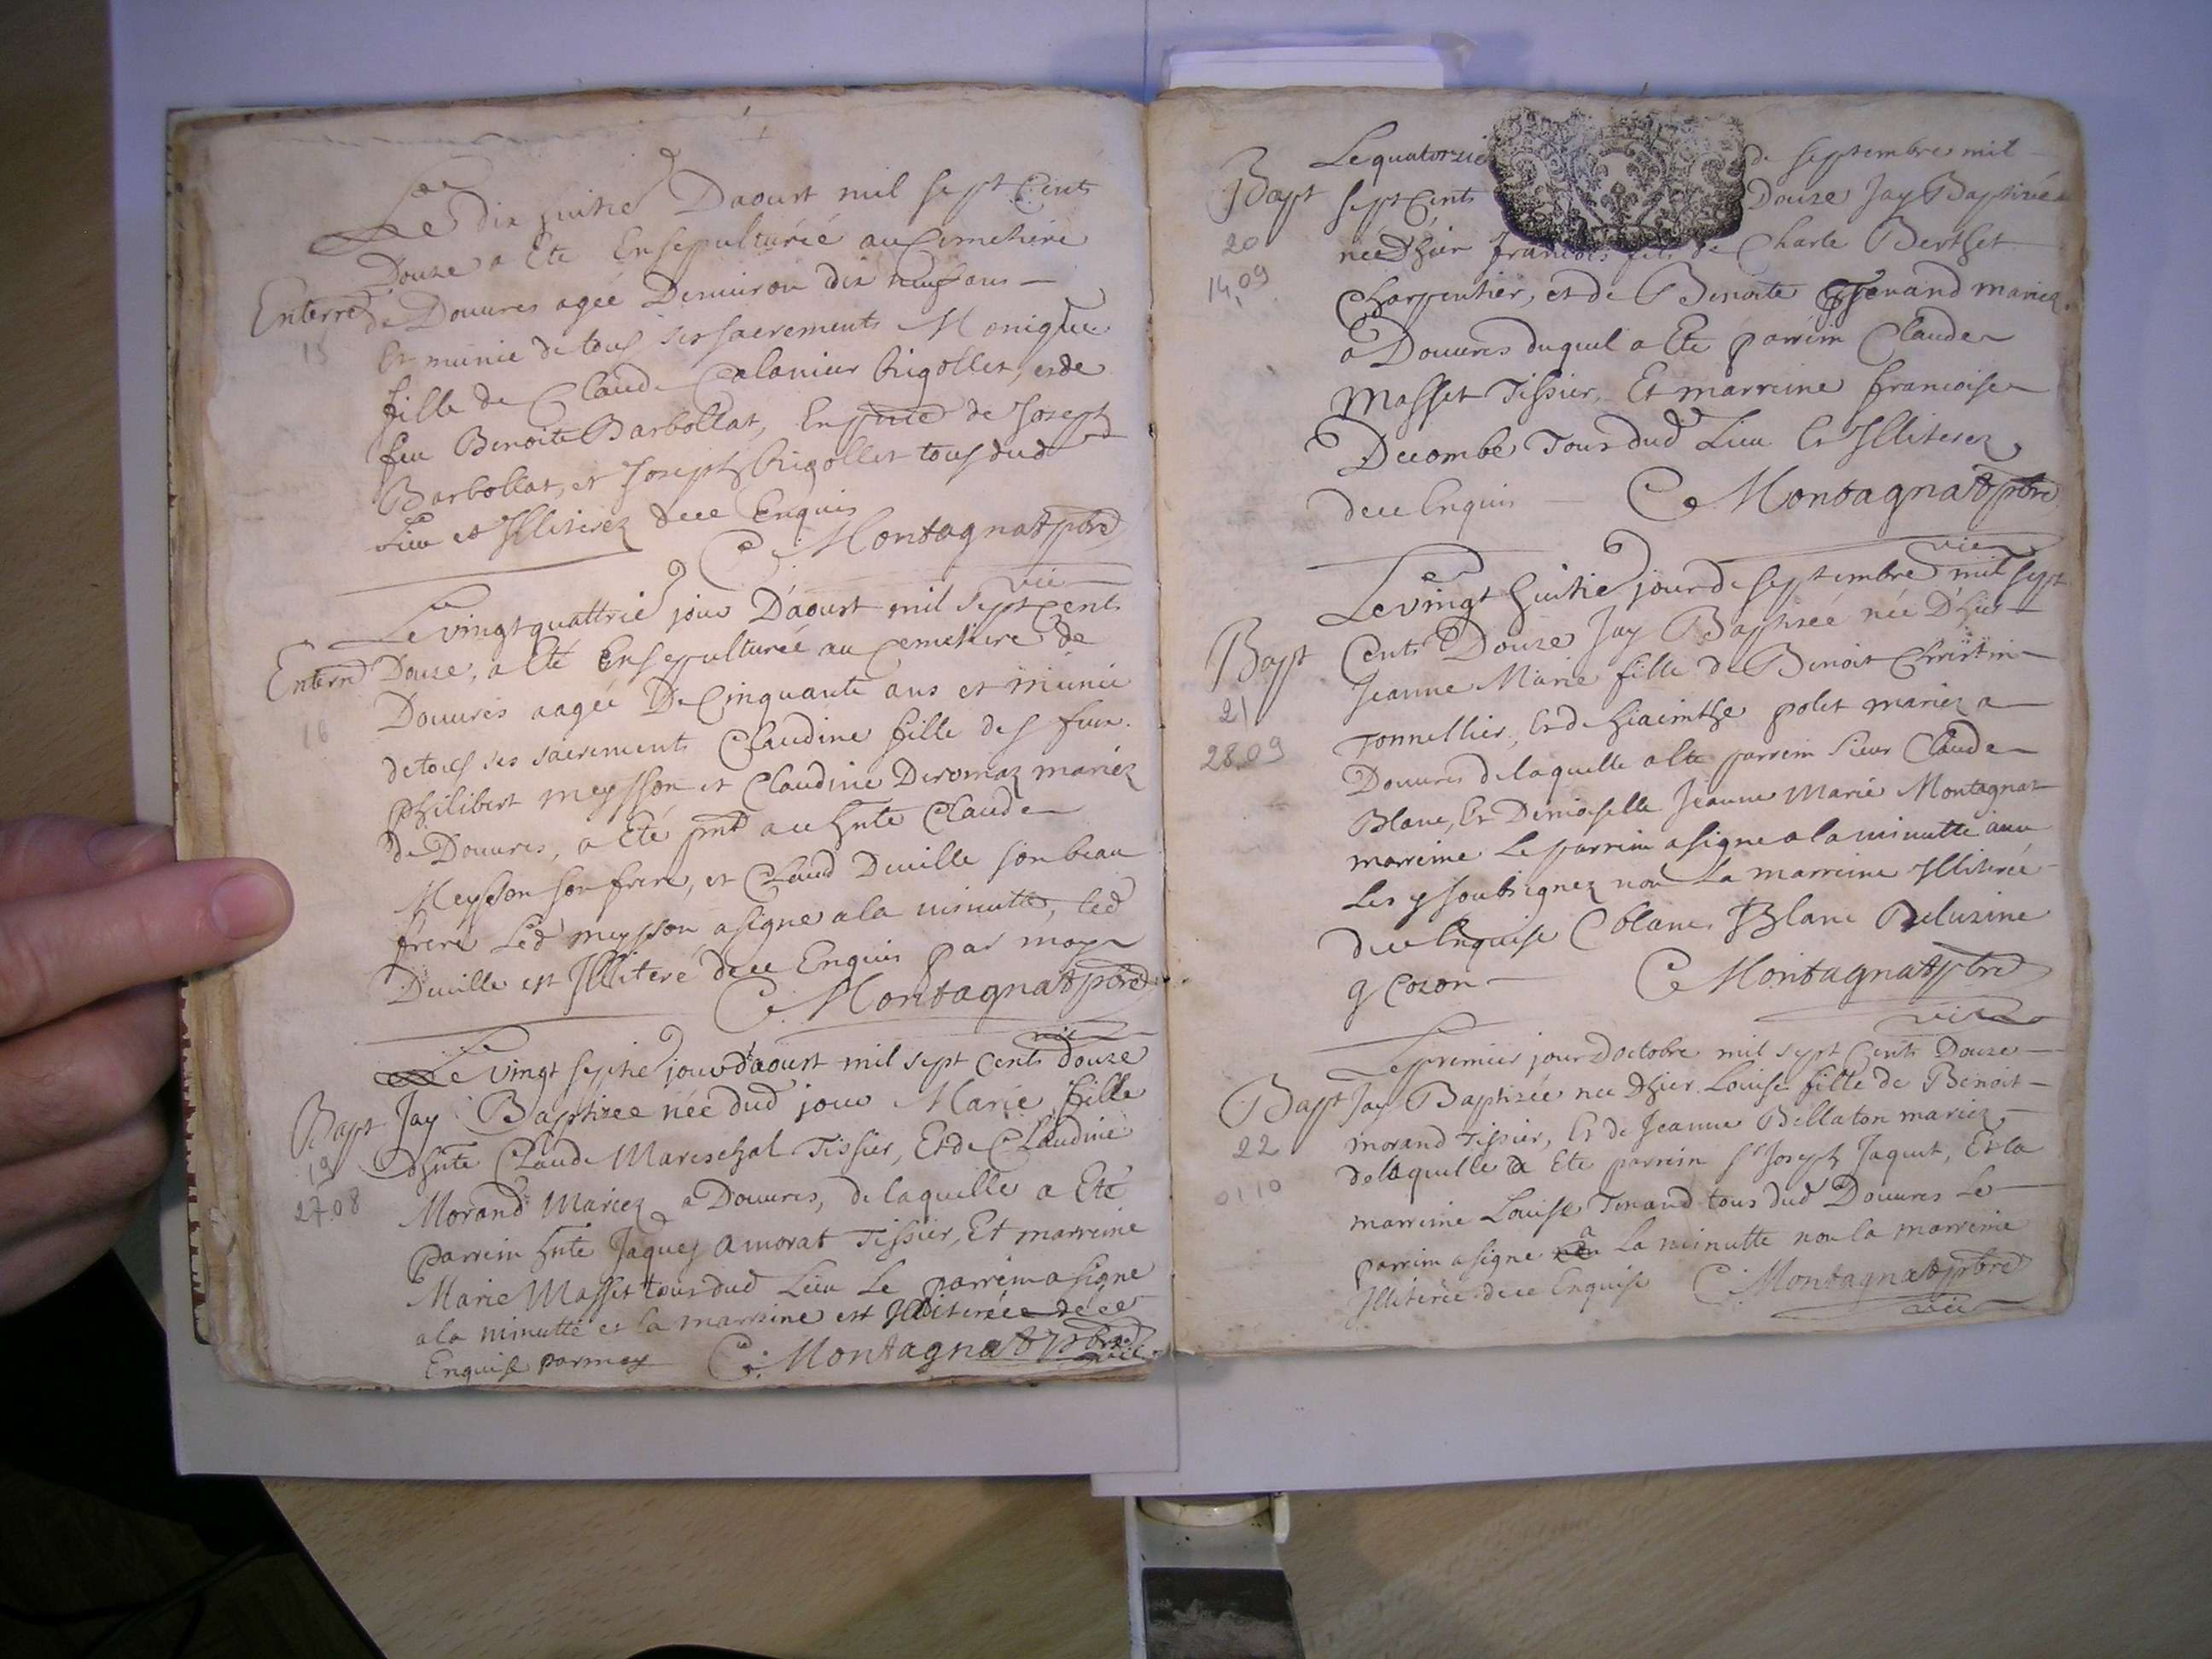 Le dix huitie Daoust mil sept Cents
Douze a Ete Ensepulturée au Cimetiere
Enterre de Douures agée Denuiron dix neuf ans
15
Et munie de tous ses sacrements Monique
fille de Claude Calanier Rigollet, et de
feu Benoite Barbollat, En pnce de Joseph
Barbollat, et Joseph Rigollet tous dud
Lieu et Illiterez de ce Enquis
C. Montagnat pbre
vic
Le vingt quattrie jour D'aoust mil sept Cents
Enterré Douze, a Eté Ensepulturée au Cemetiere de
16
Douures aagée De Cinquante ans et munie
de tous ses sacrements Claudine fille des feux
philibert meysson et Claudine Deromaz mariez
de Douures, a Eté pnt aussy hnte Claude
Meysson son frere, et Claud Deuille son beau
frere Led meysson a signe a la minutte, led
Deuille est Illiteré de ce Enquis par moy
C. Montagnat pbre
vic
Le vingt septie jour d'aoust mil sept Cents douze
Bapt Jay Baptizee née dud jour Marie fille
19
27.08
dhnte Claude Mareschal Tissier, Et de Claudine
Morand Mariez a Douures, de laquelle a Eté
parrein hnte Jaques Amorat Tissier, Et marreine
Marie Masset tous dud Lieu Le parrein a signe
a la minutte et la marreine est Illiterée de ce
Enquise par moy C. Montagnat pbre
vic
Le quatorzie de septembre mil
Bapt sept Cents Douze Jay Baptizé
20
14.09
né Dhier francois fils de Charle Berthet
Charpentier, et de Benoite Thenand mariez
a Douures duquel a Ete parrein Claude
Masset Tissier, Et marreine francoise
Decombe Tous dud Lieu Et Illiterez
de ce Enquis C. Montagnat pbre
vic
Le vingt huitie jour de septembre mil sept
Bapt Cents Douze Jay Baptizée née D'hier
21
28.09
Jeanne Marie fille de Benoit Chrestin
Tonnellier, Et de hiacinthe polet mariez a
Douures de laquelle a Ete parrein sieur Claude
Blanc, Et Demoiselle Jeanne Marie Montagnat
marreine Le parrein a signe a la minutte auec
Les y soubsignez non La marreine Illiterée
de ce Enquise C blanc J Blanc Deluzine
g Cozon C. Montagnat pbre
vic
Le premier jour Doctobre mil sept Cents Douze
Bapt Jay Baptizée nee Dhier Louise fille de Benoit
22
01.10
morand Tissier, Et de Jeanne Bellaton mariez
de laquelle a Ete parrein sr Joseph Jaquet, Et la
marreine Louise Tenand tous dud Douures Le
parrein a signe a La minutte non la marreine
Illiterée de ce Enquise C. Montagnat pbre
vic